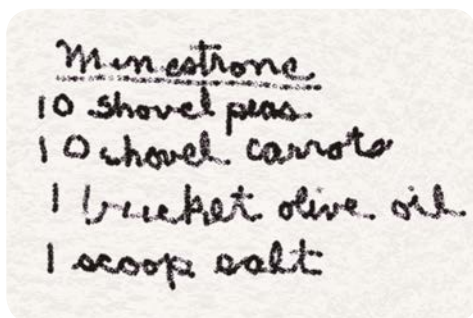 Minestrone
10 shovel peas
10 shovel carrots
1 bucket olive oil
1 scoop salt